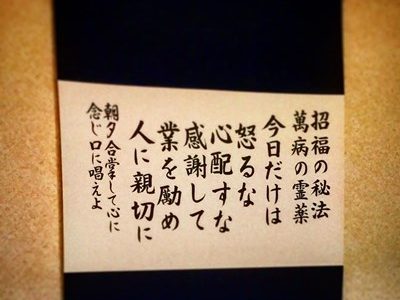 招福の秘法
萬病の霊薬
今日だけは
怒るな
心配すな
感謝して
業を励め
人に親切に
朝夕合掌して心に
念じ口に唱えよ